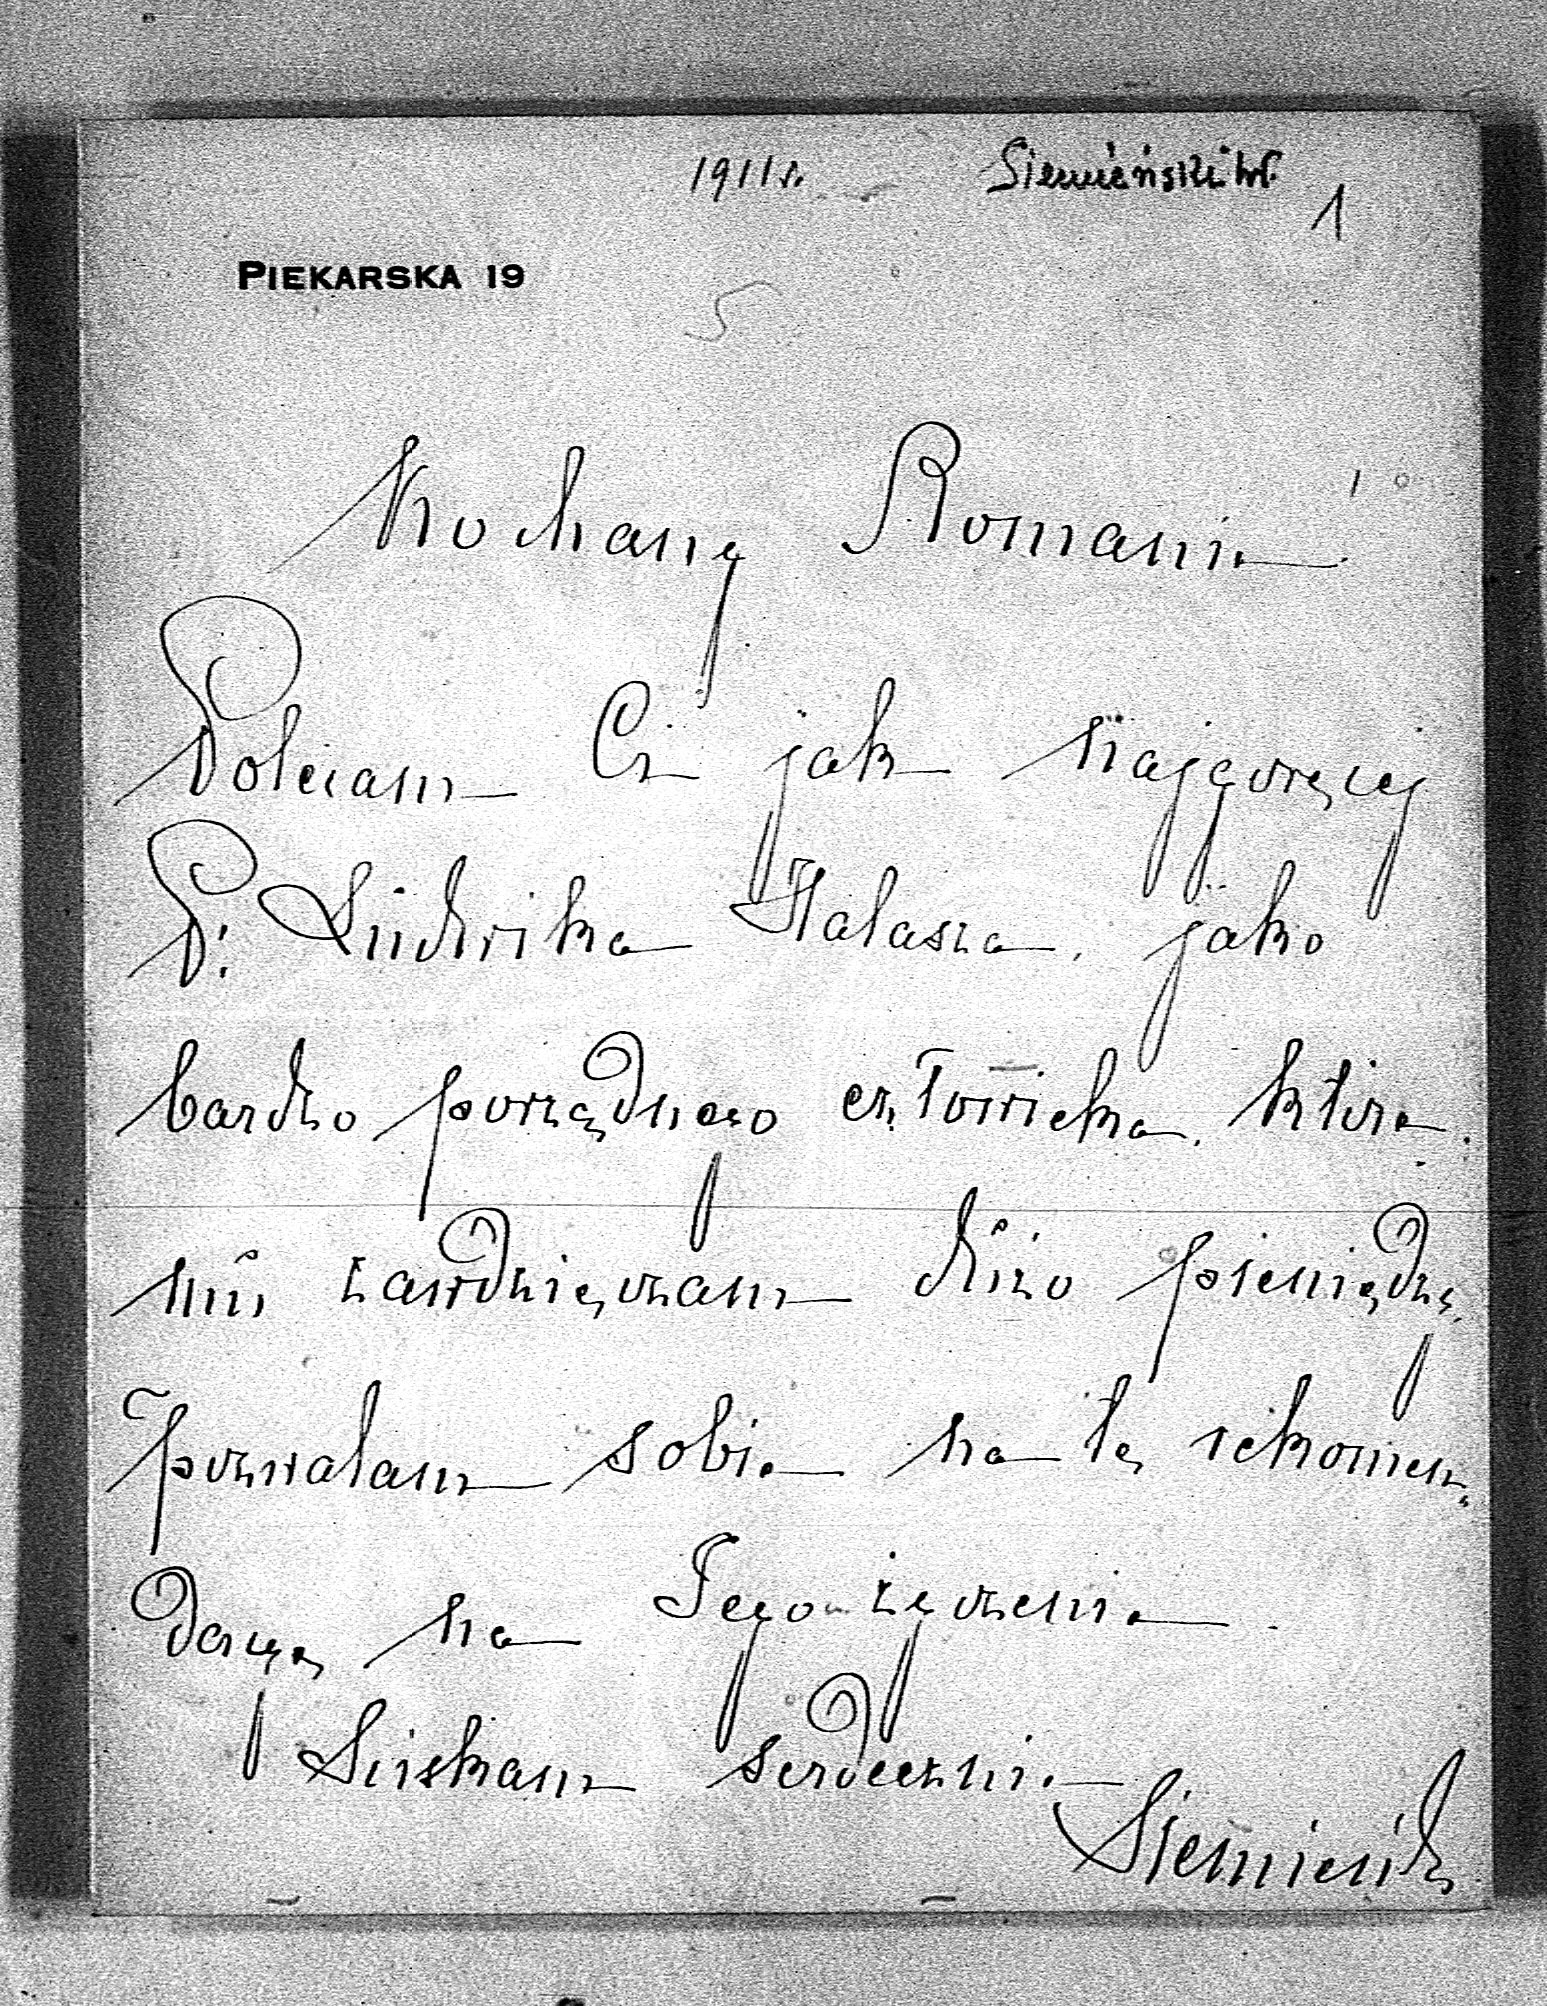 1911 r. Siemieński hr.
1
PIEKARSKA 19
5
Kochany Romanie!
Polecam Ci jak najgoręcej
P: Ludwika Halasza, jako
bardzo porządnego człowieka, która
mu zawdzięczam dużo pieniędzy.
Pozwalam sobie na tę rekomen-
dację na Jego życzenie.
Ściskam serdecznie
Siemieński